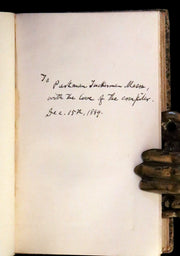 To
Parkman Tuckerman Moss,
with the love of the compiler.
Dec. 15th, 1889.